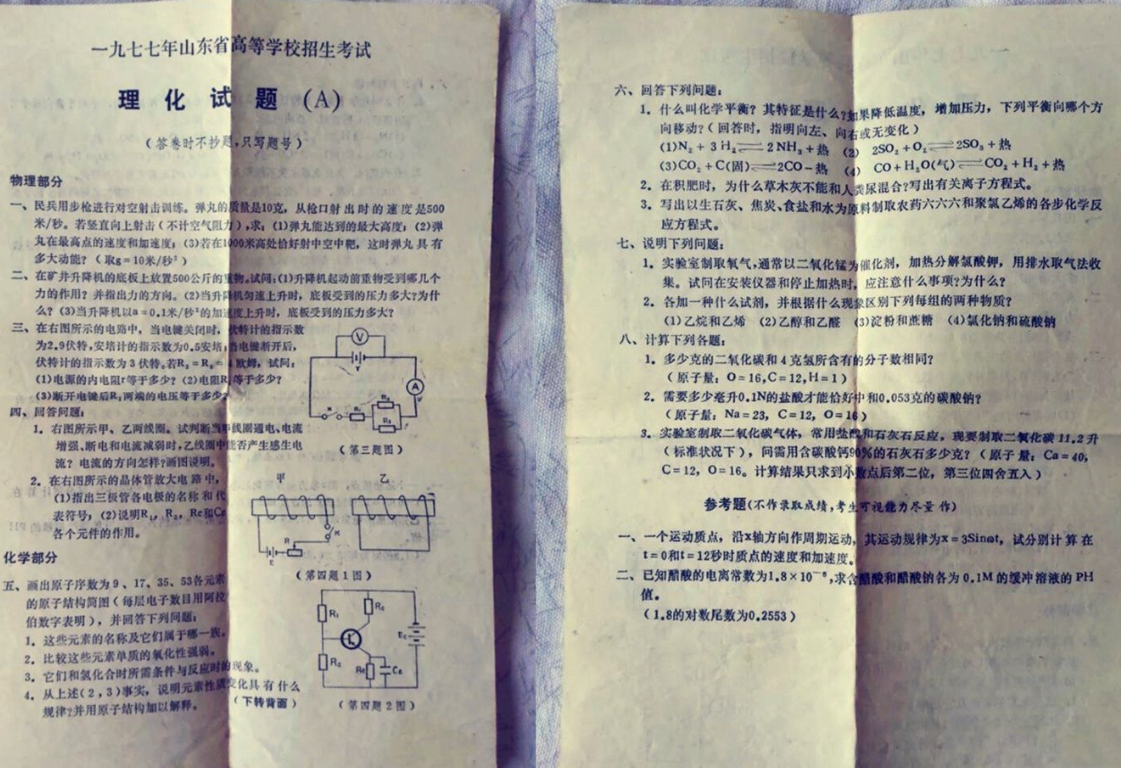 一九七七年山东省高等学校招生考试
理化试题(A)
(答卷时不抄题,只写题号)
物理部分
一、民兵用步枪进行对空射击训练。弹丸的质量是10克,从枪口射出时的速度是500
米/秒。若竖直向上射击(不计空气阻力),求:(1)弹丸能达到的最大高度;(2)弹
丸在最高点的速度和加速度;(3)若在1000米高处恰好射中空中靶,这时弹丸具有
多大动能?(取g=10米/秒²)
二、在矿井升降机的底板上放置500公斤的重物。试问:(1)升降机起动前重物受到哪几个
力的作用?并指出力的方向。(2)当升降机匀速上升时,底板受到的压力多大?为什
么?(3)当升降机以a=0.1米/秒²的加速度上升时,底板受到的压力多大?
三、在右图所示的电路中,当电键关闭时,伏特计的指示数
为2.9伏特,安培计的指示数为0.5安培;当电键断开后,
伏特计的指示数为3伏特。若R₂=R₃=4欧姆,试问:
(1)电源的内电阻r等于多少?(2)电阻R₁等于多少?
(3)断开电键后R₁两端的电压等于多少?
V
A
K
R₁
R₂
R₃
(第三题图)
四、回答问题:
1.右图所示甲、乙两线圈。试判断当甲线圈通电、电流
增强、断电和电流减弱时,乙线圈中能否产生感生电
流?电流的方向怎样?画图说明。
2.在右图所示的晶体管放大电路中,
(1)指出三极管各电极的名称和代
表符号;(2)说明R₁,R₂,Re和Ce
各个元件的作用。
甲 乙
R
K
E
(第四题1图)
化学部分
五、画出原子序数为9、17、35、53各元素
的原子结构简图(每层电子数目用阿拉
伯数字表明),并回答下列问题:
1.这些元素的名称及它们属于哪一族。
2.比较这些元素单质的氧化性强弱。
3.它们和氢化合时所需条件与反应时的现象。
4.从上述(2,3)事实,说明元素性质变化具有什么
规律?并用原子结构加以解释。
(下转背面)
R₁
Rc
R₂
Re
Ce
Ec
(第四题2图)
六、回答下列问题:
1.什么叫化学平衡?其特征是什么?如果降低温度,增加压力,下列平衡向哪个方
向移动?(回答时,指明向左、向右或无变化)
(1)N₂+3H₂⇌2NH₃+热 (2) 2SO₂+O₂⇌2SO₃+热
(3)CO₂+C(固)⇌2CO-热 (4) CO+H₂O(气)⇌CO₂+H₂+热
2.在积肥时,为什么草木灰不能和人粪尿混合?写出有关离子方程式。
3.写出以生石灰、焦炭、食盐和水为原料制取农药六六六和聚氯乙烯的各步化学反
应方程式。
七、说明下列问题:
1.实验室制取氧气,通常以二氧化锰为催化剂,加热分解氯酸钾,用排水取气法收
集。试问在安装仪器和停止加热时,应注意什么事项?为什么?
2.各加一种什么试剂,并根据什么现象区别下列每组的两种物质?
(1)乙烷和乙烯 (2)乙醇和乙醛 (3)淀粉和蔗糖 (4)氯化钠和硫酸钠
八、计算下列各题:
1.多少克的二氧化碳和4克氢所含有的分子数相同?
(原子量:O=16,C=12,H=1)
2.需要多少毫升0.1N的盐酸才能恰好中和0.053克的碳酸钠?
(原子量:Na=23,C=12,O=16)
3.实验室制取二氧化碳气体,常用盐酸和石灰石反应,现要制取二氧化碳11.2升
(标准状况下),问需用含碳酸钙90%的石灰石多少克?(原子量:Ca=40,
C=12,O=16。计算结果只求到小数点后第二位,第三位四舍五入)
参考题(不作录取成绩,考生可视能力尽量作)
一、一个运动质点,沿x轴方向作周期运动,其运动规律为x=3Sinωt,试分别计算在
t=0和t=12秒时质点的速度和加速度。
二、已知醋酸的电离常数为1.8×10⁻⁵,求含醋酸和醋酸钠各为0.1M的缓冲溶液的PH
值。
(1.8的对数尾数为0.2553)